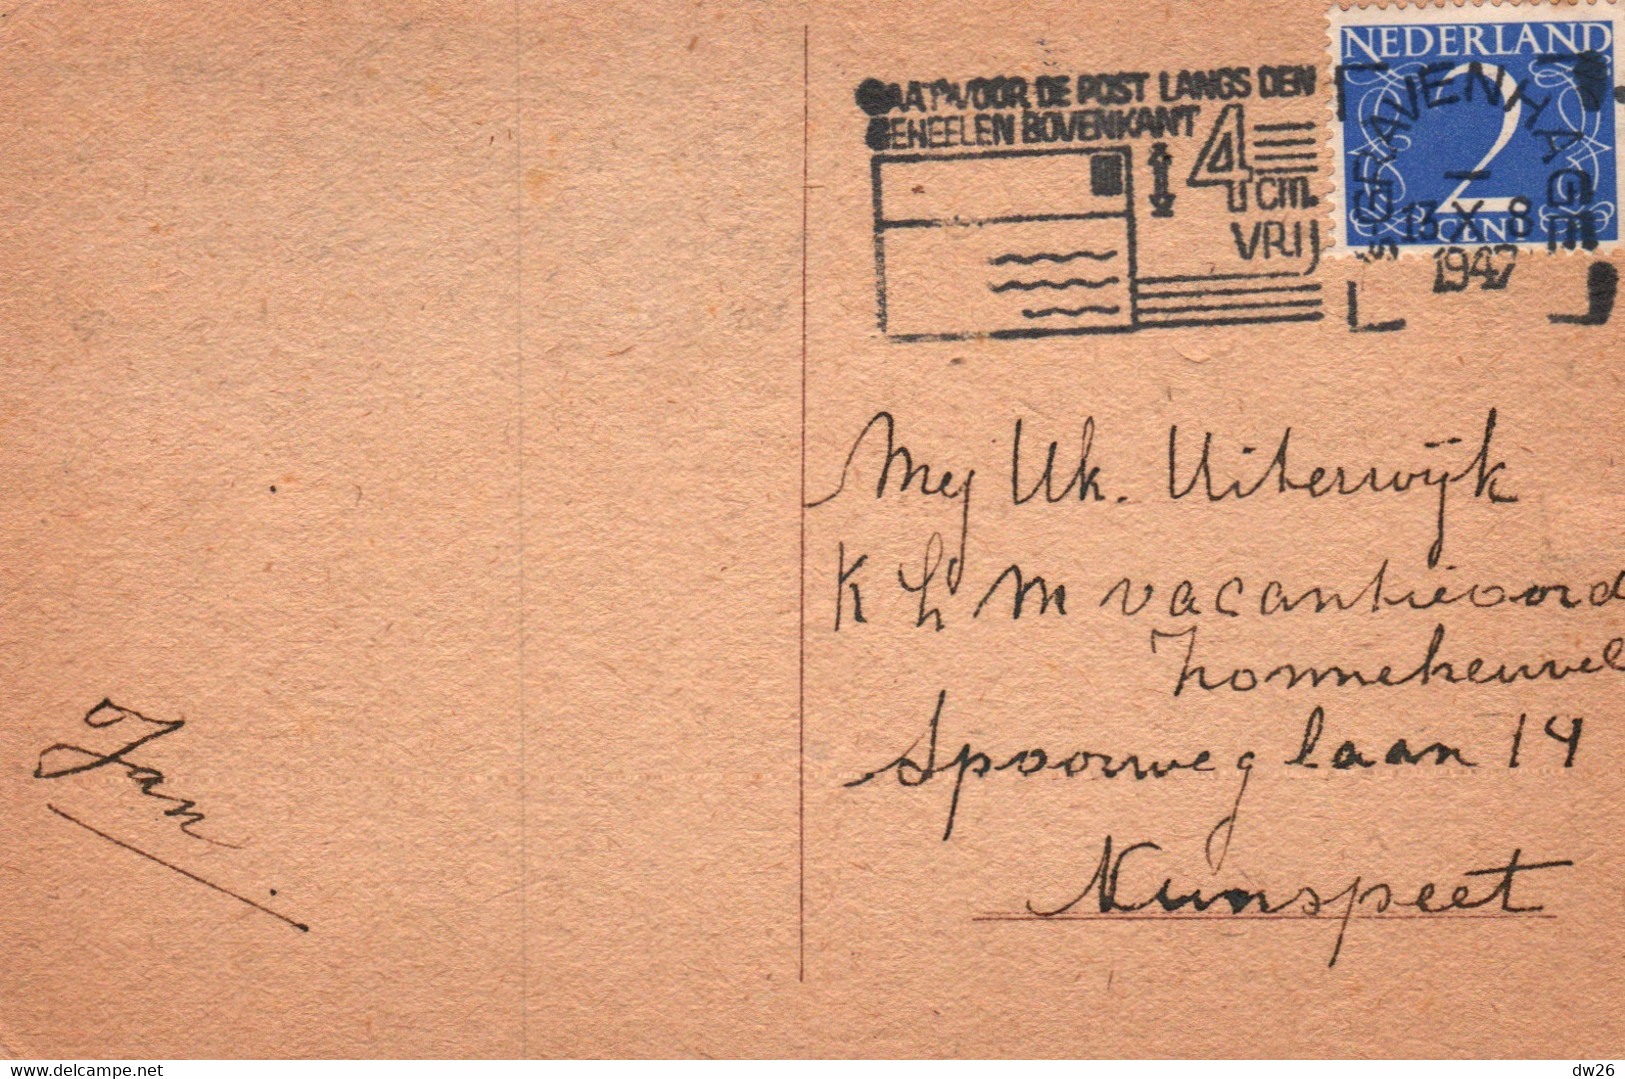 NEDERLAND
2
CENT
LAAT VOOR DE POST LANGS DEN
GEHEELEN BOVENKANT 4
cm.
VRIJ
'S GRAVENHAGE
13 X 8
1947
Mej Uk. Uiterwijk
K L M vacantieoord
Zonneheuvel
Spoorweg laan 14
Nunspeet
Jan
dw26